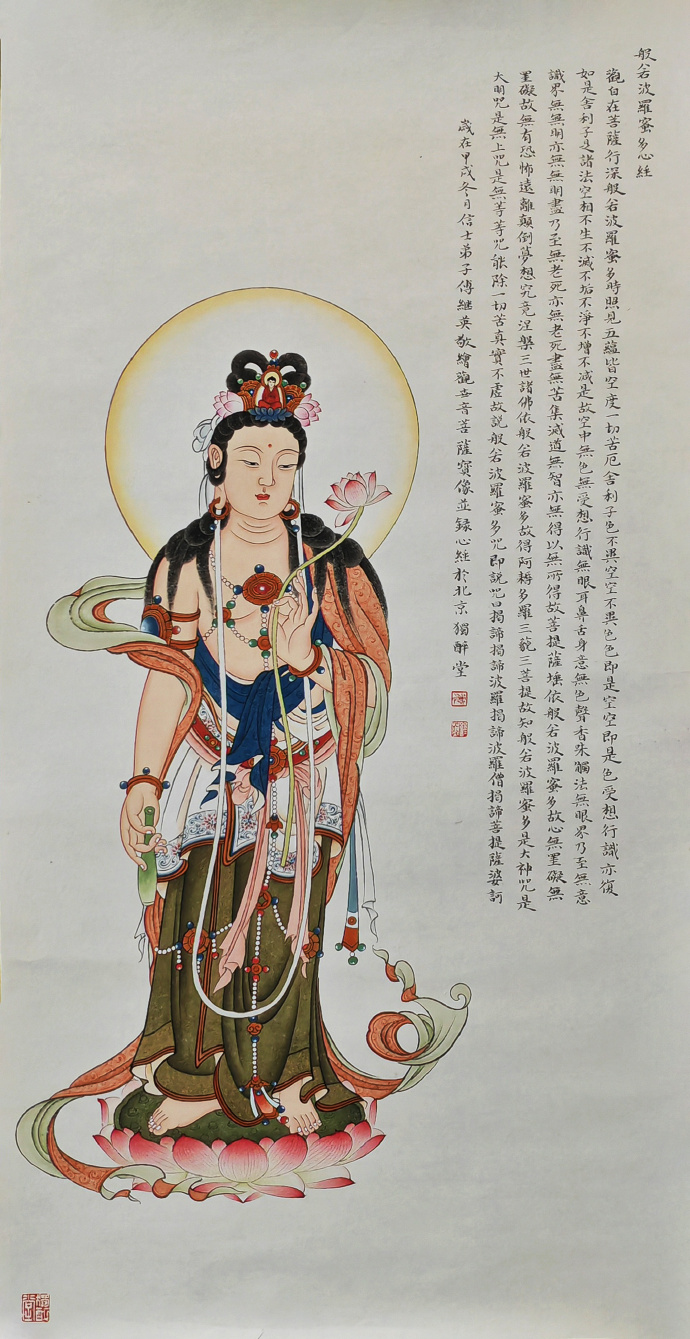 般若波羅蜜多心經
觀自在菩薩行深般若波羅蜜多時照見五蘊皆空度一切苦厄舍利子色不異空空不異色色即是空空即是色受想行識亦復
如是舍利子是諸法空相不生不滅不垢不淨不增不减是故空中無色無受想行識無眼耳鼻舌身意無色聲香味觸法無眼界乃至無意
識界無無明亦無無明盡乃至無老死亦無老死盡無苦集滅道無智亦無得以無所得故菩提薩埵依般若波羅蜜多故心無罣礙無
罣礙故無有恐怖遠離顛倒夢想究竟涅槃三世諸佛依般若波羅蜜多故得阿耨多羅三藐三菩提故知般若波羅蜜多是大神咒是
大明咒是無上咒是無等等咒能除一切苦真實不虛故說般若波羅蜜多咒即說咒曰揭諦揭諦波羅揭諦波羅僧揭諦菩提薩婆訶
歲在甲戌冬月信士弟子傅繼英敬繪觀世音菩薩寶像並録心經於北京獨醉堂